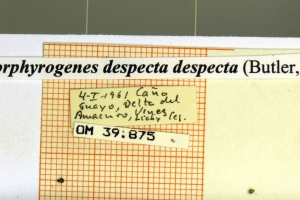 orphyrogenes despecta despecta (Butler,
4-I-1961 Caño
Guayo, Delta del
Amacuro, Venez
Lichy
OM 39.875